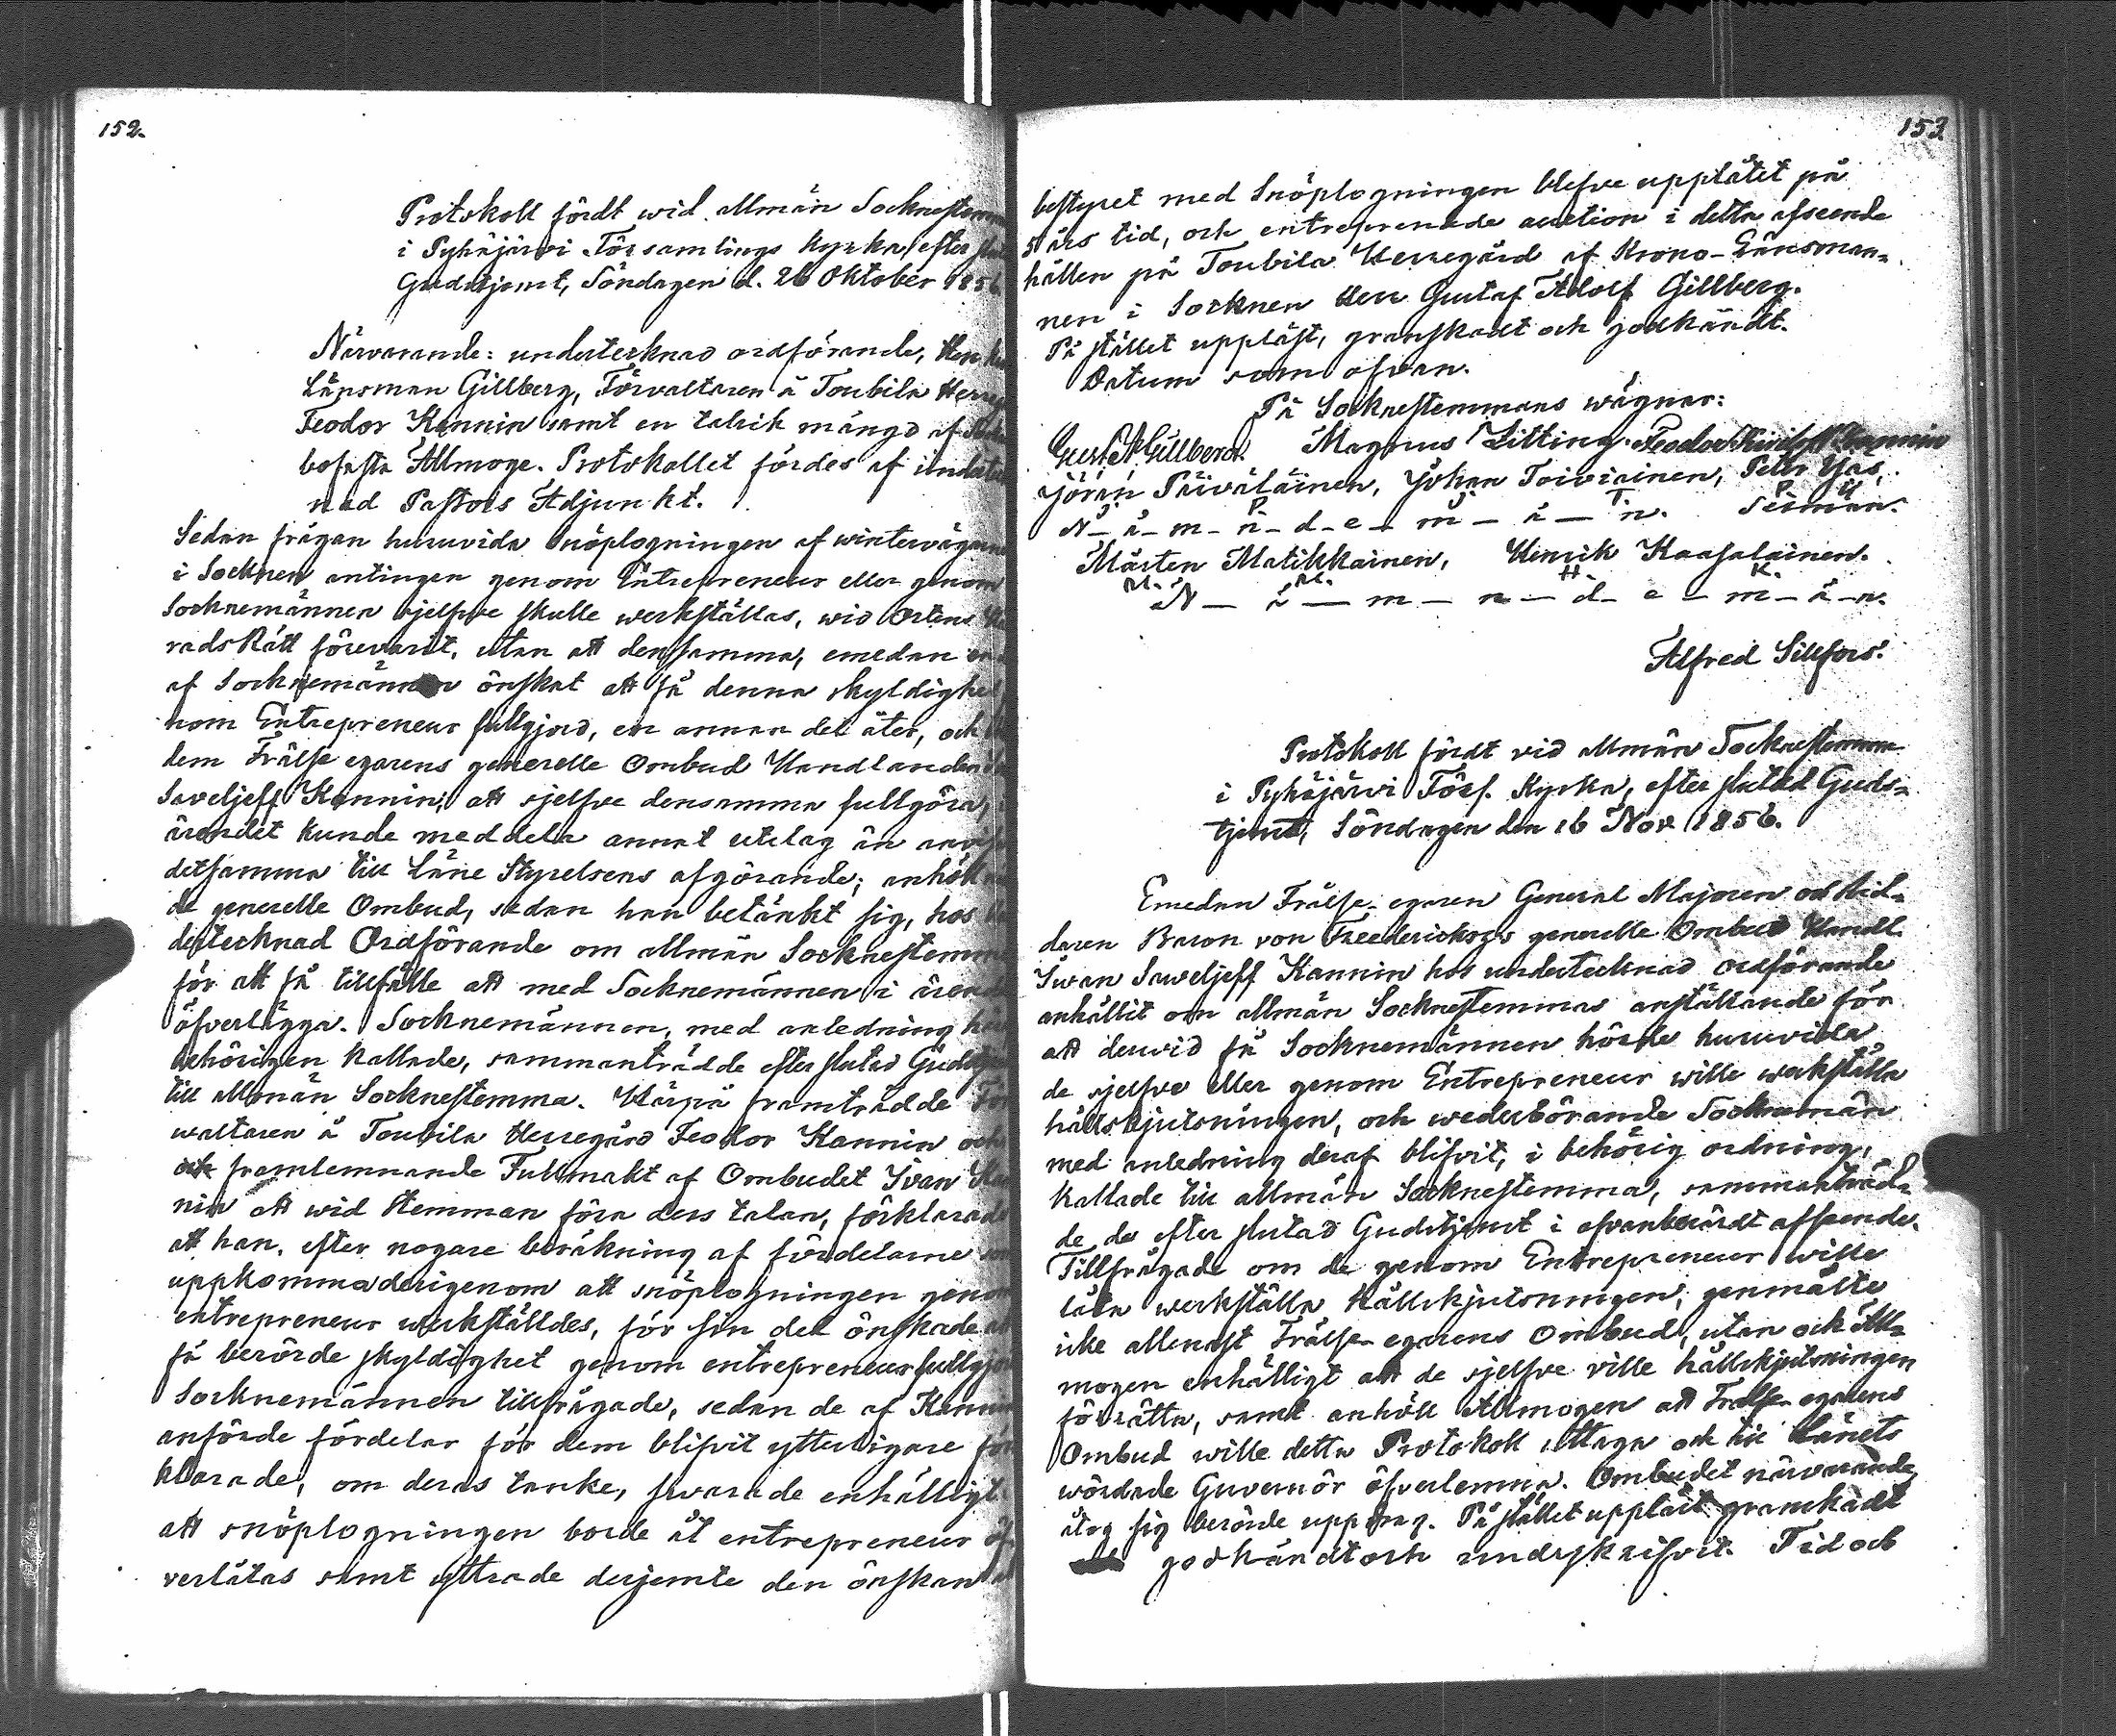 152.
Protokoll fördt wid allmän Sockneſtemma
i Pyhäjärvi Församlings Kyrka, efter
Gudstjenst, Söndagen d. 26 Oktober 1856
Närvarande: undertecknad ordförande, Herr
Länsman Gillberg, Förvaltaren å Toubila
Feodor Kannin samt en talrik mängd af
bofaſta Allmoge. Protokollet fördes af
nad Paſtors Adjunkt.
Sedan frågan huruvida snöplogningen af wintervägarne
i Socknen antingen genom Entrepreneur eller genom
Socknemännen sjelfve ſkulle werkſtällas, wid Ortens
radsRätt förevarit, utan att denſamma, emedan en
af Socknemännen önſkat att få denna skyldighet
nom Entrepreneur fullgjord, en annan del åter, och
dem Frälſe egarens generelle Ombud Handlanden
Saveljeff Kannin, att sjelfve densamma fullgöra,
ärendet kunde meddela annat utslag än
detſamma till Läne Styrelsens afgörande; anhöll
de generelle Ombud, sedan han betänkt ſig, hos
dertecknad Ordförande om allmän Sockneſtemma
för att få tillfälle att med Socknemännen i
öfverlägga. Socknemännen, med anledning
behörigen kallade, sammanträdde efter ſlutad
till allmän Sockneſtemma. Härpå framträdde För
waltaren å Toubila Herregård Feodor Kannin och
framlemnande Fullmakt af Ombudet Ivan Kan
nin att wid ſtemman föra dess talan, förklarade
att han, efter nogare beräkning af fördelarne som
uppkomma derigenom att snöplogningen genom
entrepreneur werkſtälldes, för ſin del önſkade
få berörde ſkyldighet genom entrepreneur
Socknemännen tillfrågade, sedan de af Kannin
anförde fördelar för dem blifvit ytterligare för
klarade, om deras tanke, ſvarade enhälligt
att snöplogningen borde åt entrepreneur öf
verlåtas samt yttrade derjemte den önſkan
153.
beſtyret med Snöplogningen blefve upplåtet på
5 års tid, och entreprenade auction i detta afseende
hållen på Toubila Herregård af Krono-Länsman=
nen i Socknen Herr Guſtaf Adolf Gillberg.
På ſtället uppläſt, granſkadt och godkändt.
Datum som ofvan.
På Sockneſtemmans wägnar:
Gust. A. Gillberg. Magnus Litting. Feodor Kannin
Jöran Päiväläinen, Johan Toiviainen, Peter Yas,
J. P. J. T. P. Y.
N-ä-m-n-d-e-m-ä-n. Sexmän.
Mårten Matikkainen, Henrik Kaasalainen.
M. M. H. K.
N-ä-m-n-d-e-m-ä-n.
Alfred Sillfors.
Protokoll fördt vid allmän Sockneſtemma
i Pyhäjärvi Förſ. Kyrka, efter ſlutad Guds=
tjenst, Söndagen den 16 Nov 1856.
Emedan Frälſe-egaren General Majoren och Rid=
daren Baron von Freedericksz's generelle Ombud Handl.
Iwan Saweljeff Kannin hos undertecknad ordförande
anhållit om allmän Sockneſtemmas anſtällande för
att derwid få Socknemännen hörde huruvida
de sjelfve eller genom Entrepreneur wille werkſtälla
hållskjutsningen, och wederbörande Socknemän
med anledning deraf blifvit, i behörig ordning,
kallade till allmän Sockneſtemma, sammanträd=
de de efter ſlutad Gudstjenst i ofvanberördt afſeende.
Tillfrågade om de genom Entrepreneur wille
låta werkſtälla hållskjutsningen, genmälte
icke allenaſt Frälſe-egarens Ombud, utan ock All=
mogen enhälligt att de sjelfve ville hållskjutsningen
förrätta, samt anhöll Allmogen att Frälſe-egarens
Ombud wille detta Protokoll uttaga och till Länets
wördade Guvernör öfverlemna. Ombudet närvarande,
åtog ſig berörde uppdrag. På ſtället uppläst granskadt
godkändt och underskrifvit. Tid och